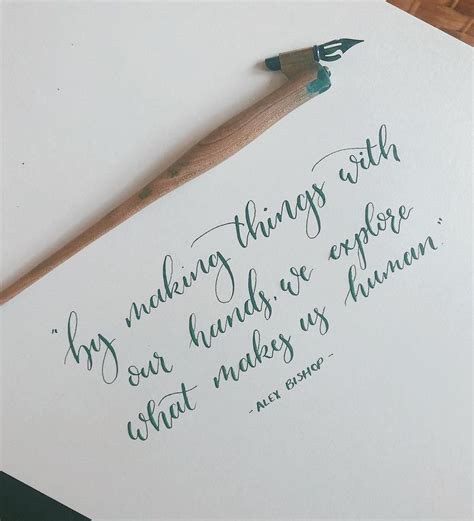 "by making things with
our hands, we explore
what makes us human."
- ALEX BISHOP -